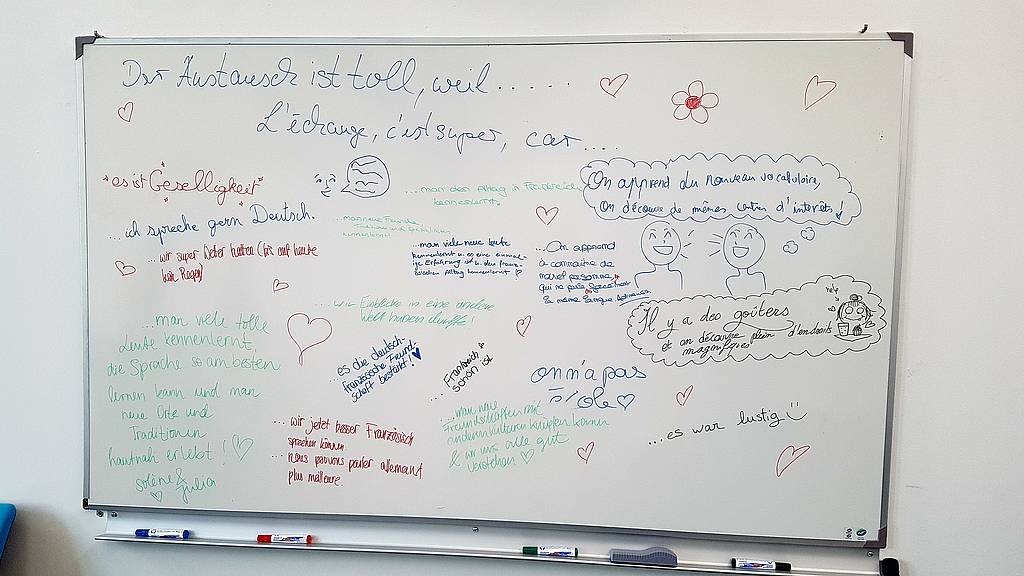 Der Austausch ist toll, weil.....
L'échange, c'est super, car....
"es ist Geselligkeit"
...man den Alltag in Frankreich
kennenlernt.
On apprend du nouveau vocabulaire,
On découvre de mêmes centres d'intérêts!
...ich spreche gern Deutsch.
...man neue Freunde,
kennenlernt
...wir super Wetter hatten (bis auf heute
kein Regen)
...man viele neue Leute
kennenlernt u. es eine einmal-
ige Erfahrung ist u. den franzö-
sischen Alltag kennenlernt ♡
...On apprend
à connaitre de
personne
qui ne parle
la même langue
...wir Einblicke in eine andere
Welt haben durfte!
Il y a des goûters
et on découvre plein d'endroits
magnifiques
...man viele tolle
Leute kennenlernt,
die Sprache so am besten
lernen kann und man
neue Orte und
Traditionen
hautnah erlebt! ♡
solène &
Julia
♡
...es die deutsch-
französische Freund-
schaft bestärkt! ♥
...Frankreich
schön ist
on n'a pas
école ♡
...wir jetzt besser Französisch
sprechen können
...nous pouvons parler allemand
plus meilleure.
...man neue
Freundschaften mit
anderen Kulturen knüpfen kann
& wir uns alle gut
verstehen ♡
...es war lustig